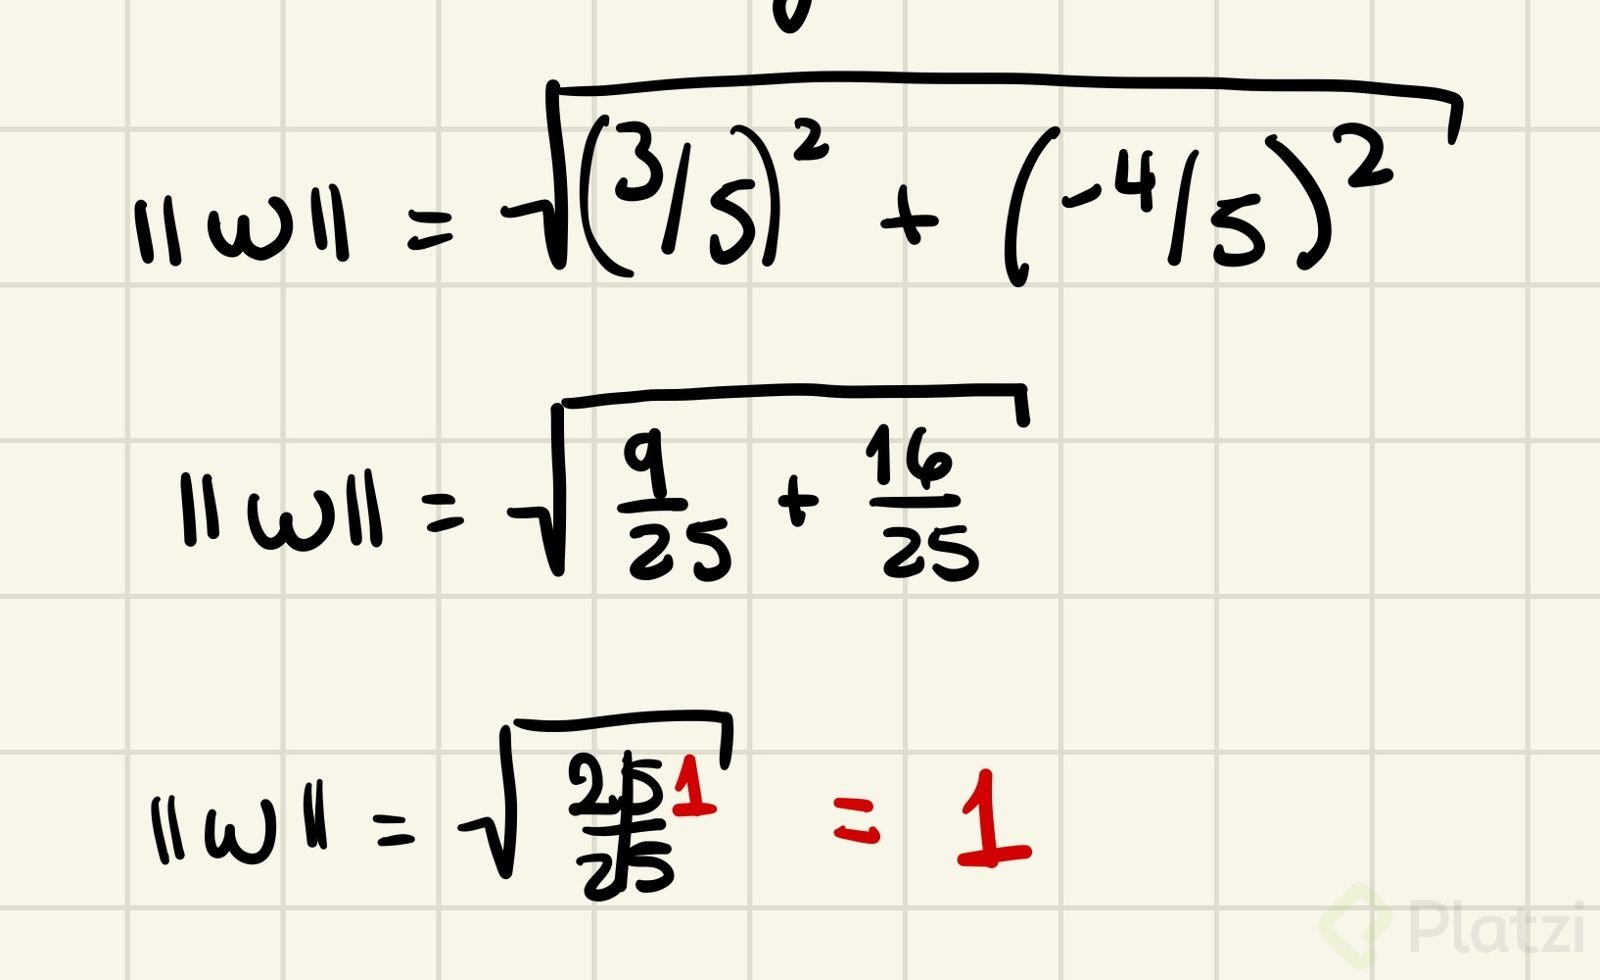 ||w|| = √((3/5)² + (-4/5)²)
||w|| = √(9/25 + 16/25)
||w|| = √(25/25 1) = 1
Platzi